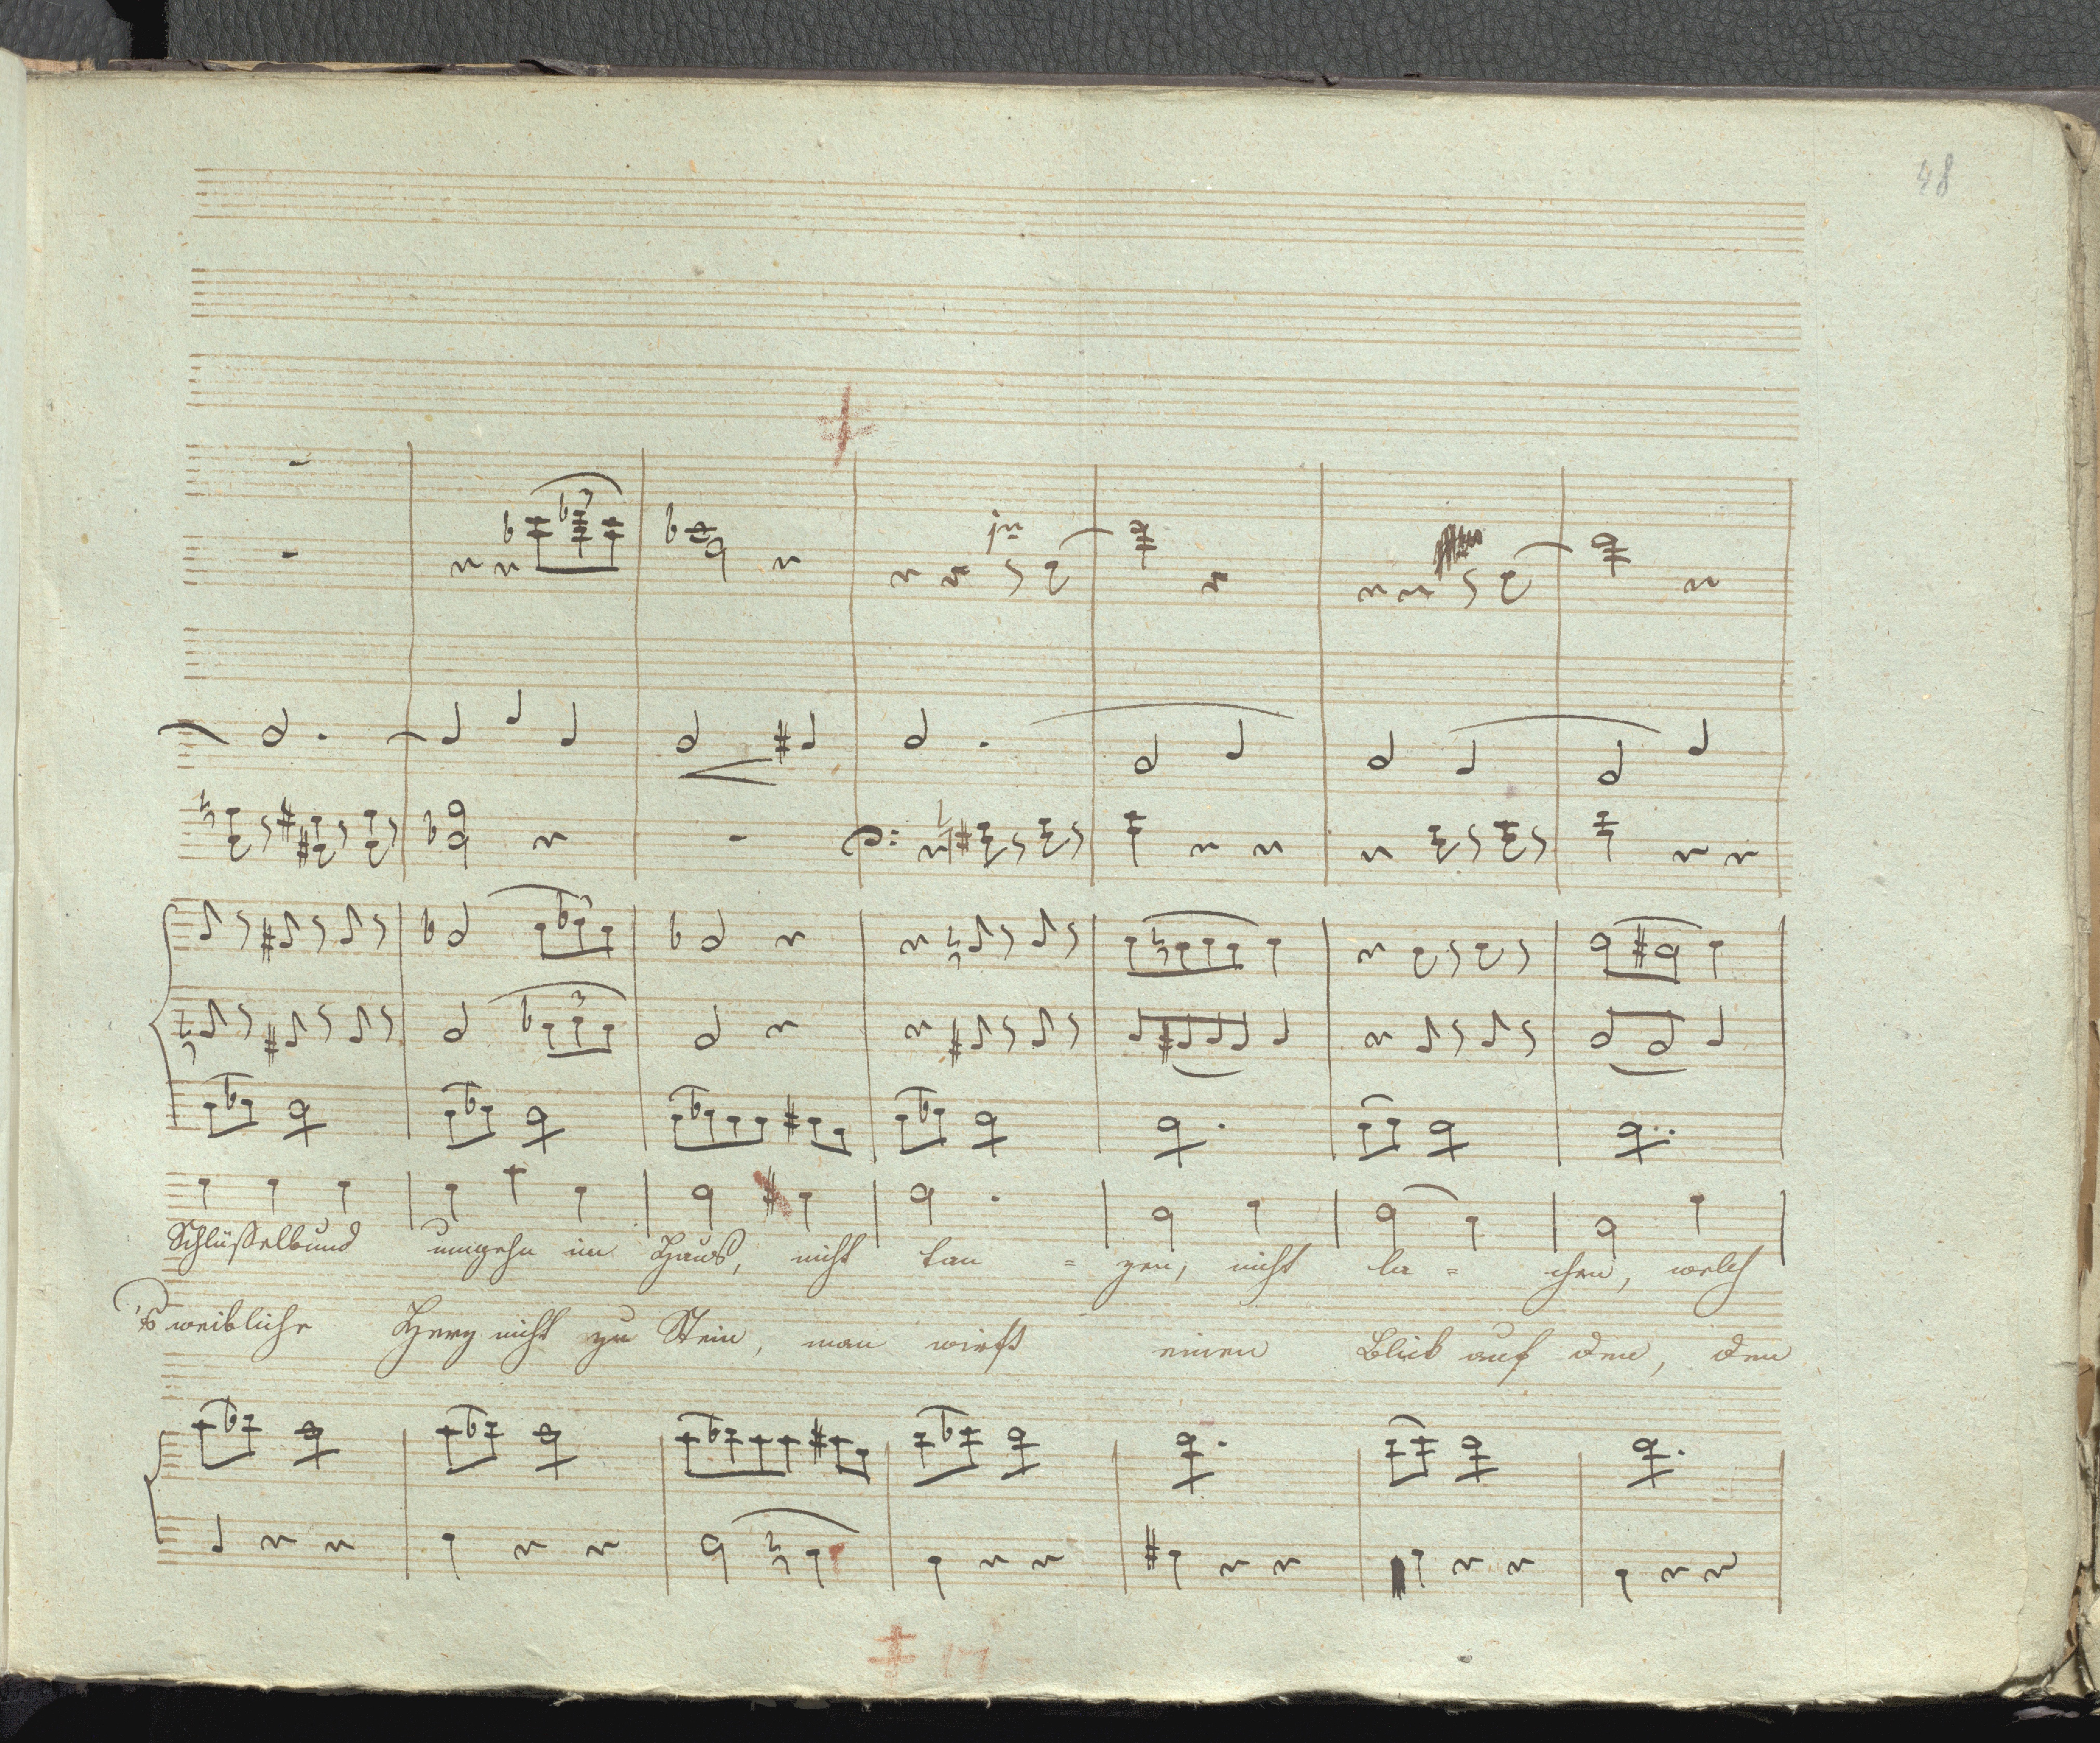 48
3
in
3
3
Schlüsselbund umgehn im Haus, nicht tan = zen, nicht la = chen, welch
's weibliche Herz nicht zu Stein, man wirft einen Blick auf den, den
17